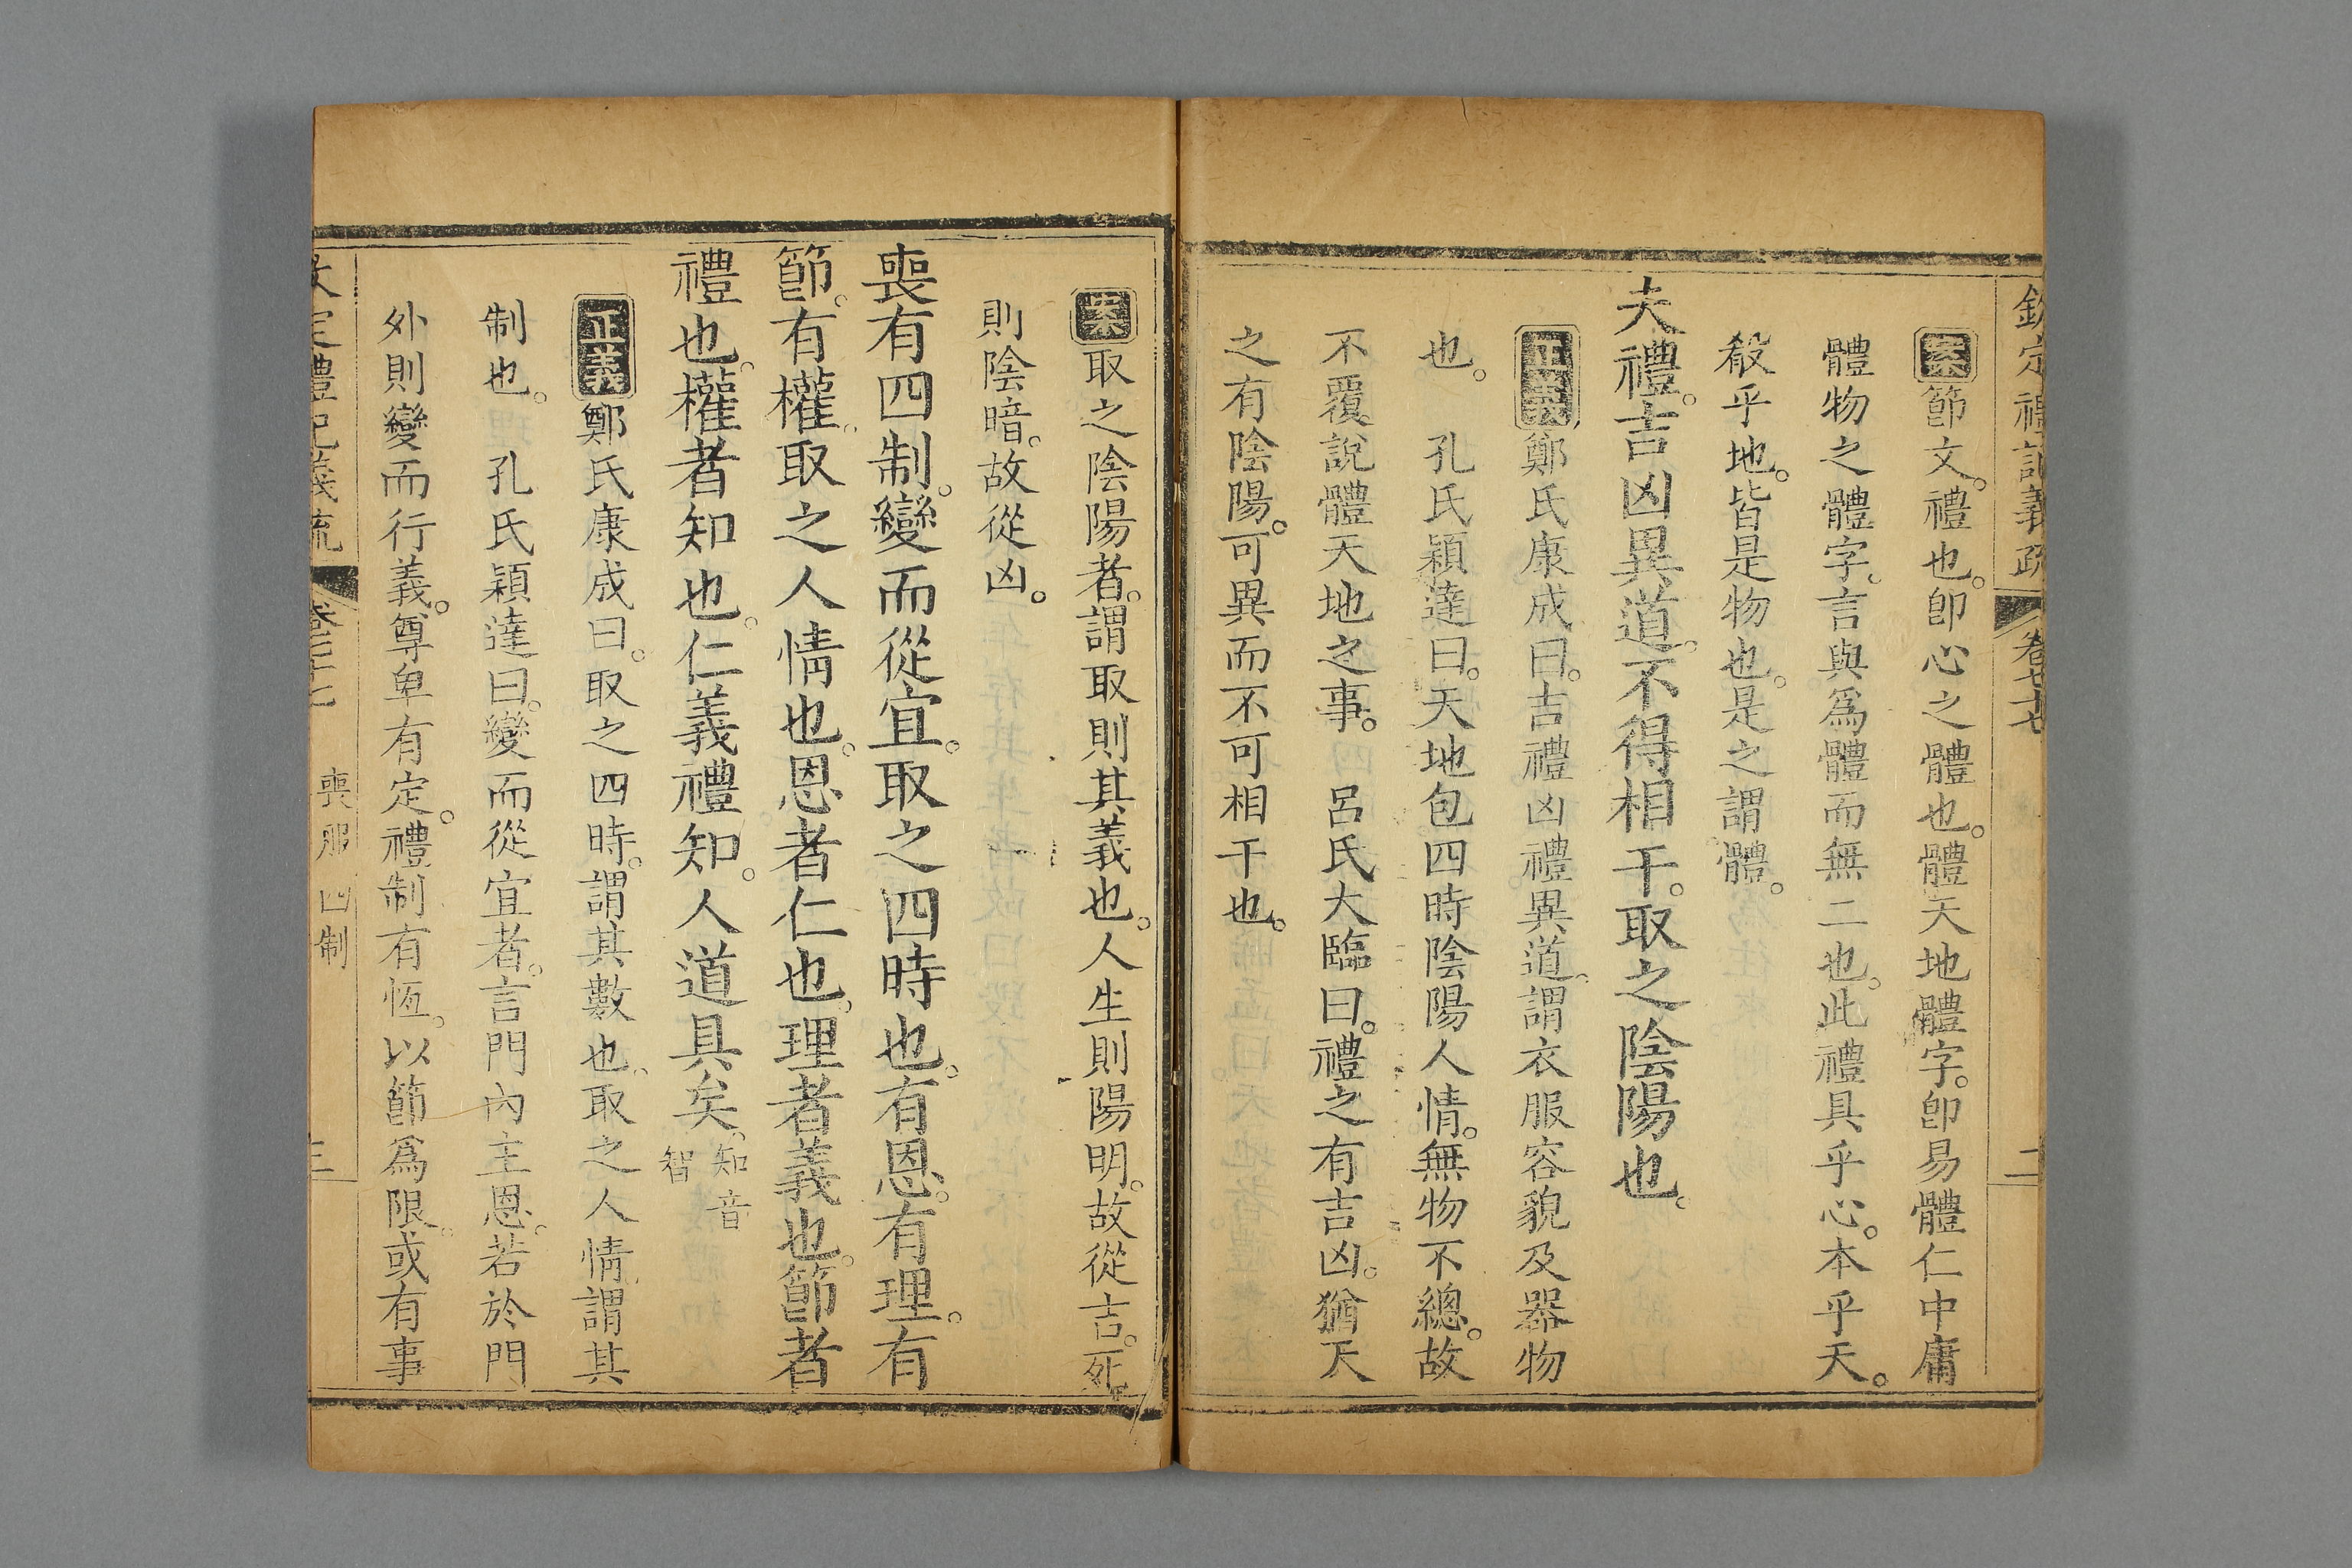 欽定禮記義疏 卷七十七 二
案節文。禮也。卽心之體也。體天地體字。卽易體仁中庸
體物之體字。言與爲體而無二也。此禮具乎心。本乎天。
殽乎地。皆是物也。是之謂體。
夫禮。吉凶異道。不得相干。取之陰陽也。
正義鄭氏康成曰。吉禮凶禮異道。謂衣服容貌及器物
也。 孔氏穎達曰。天地包四時陰陽人情。無物不總。故
不覆說體天地之事。 呂氏大臨曰。禮之有吉凶。猶天
之有陰陽。可異而不可相干也。
案取之陰陽者。謂取則其義也。人生則陽明。故從吉。死
則陰暗。故從凶。
喪有四制。變而從宜。取之四時也。有恩。有理。有
節。有權。取之人情也。恩者仁也。理者義也。節者
禮也。權者知也。仁義禮知。人道具矣。知音智
正義鄭氏康成曰。取之四時。謂其數也。取之人情。謂其
制也。 孔氏穎達曰。變而從宜者。言門內主恩。若於門
外則變而行義。尊卑有定。禮制有恆。以節爲限。或有事
欽定禮記義疏 卷七十七 喪服四制 三